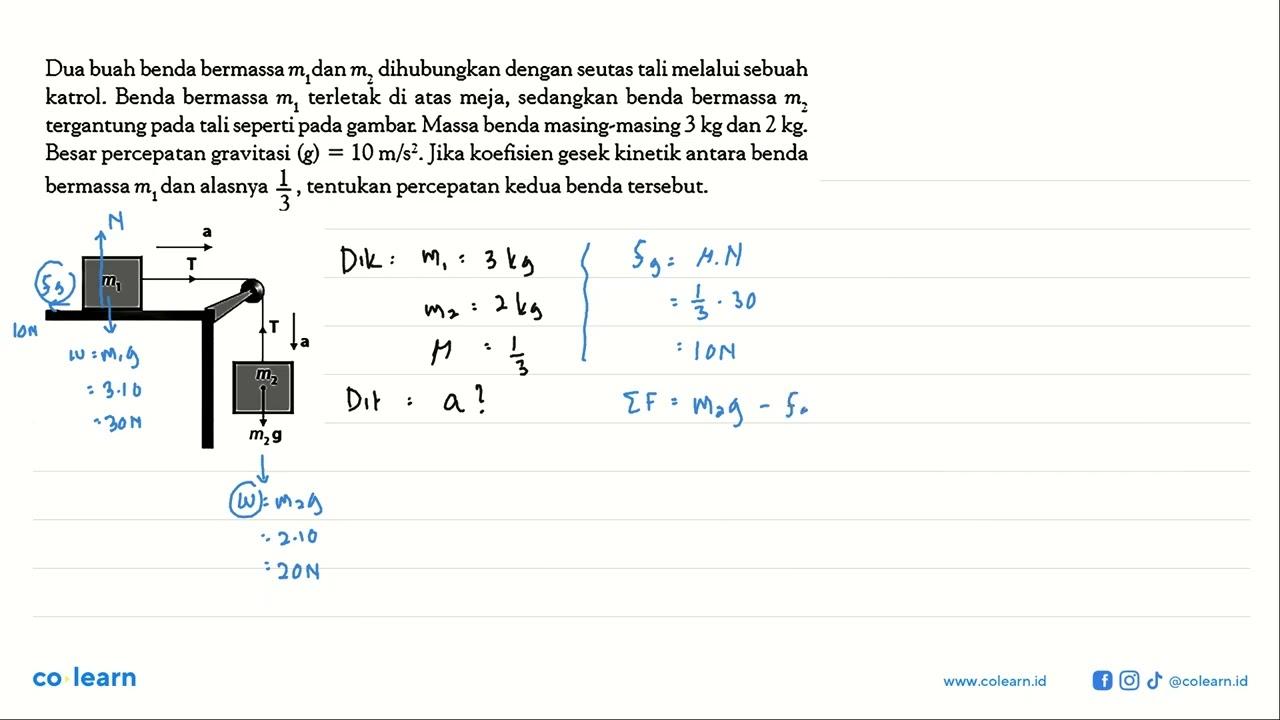 Dua buah benda bermassa m₁ dan m₂ dihubungkan dengan seutas tali melalui sebuah
katrol. Benda bermassa m₁ terletak di atas meja, sedangkan benda bermassa m₂
tergantung pada tali seperti pada gambar. Massa benda masing-masing 3 kg dan 2 kg.
Besar percepatan gravitasi (g) = 10 m/s². Jika koefisien gesek kinetik antara benda
bermassa m₁ dan alasnya 1/3, tentukan percepatan kedua benda tersebut.
N
a
T
fg
m₁
10N
W = m₁g
= 3.10
= 30N
T
a
m₂
m₂g
W = m₂g
= 2.10
= 20N
Dik : m₁ = 3 kg
m₂ = 2 kg
μ = 1/3
Dit : a?
fg = μ.N
= 1/3 . 30
= 10N
ΣF = m₂g - f
co learn
www.colearn.id
@colearn.id